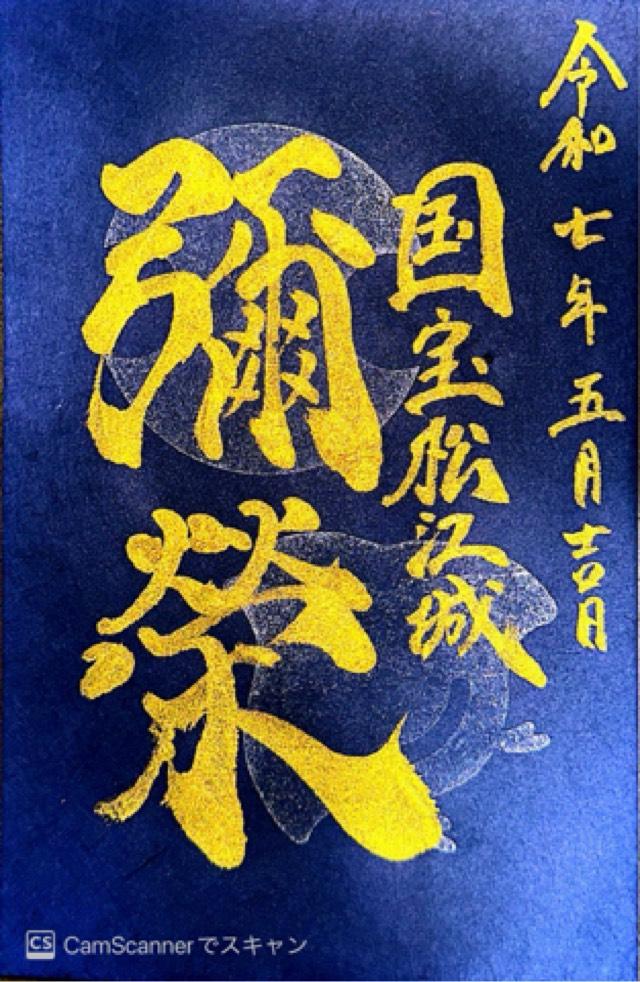 令和七年五月吉日
国宝松江城
彌榮
CS CamScannerでスキャン